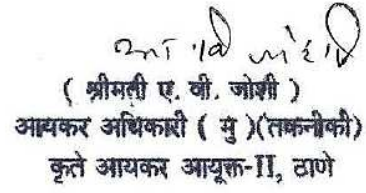 ( श्रीमती ए. वी. जोशी )
आयकर अधिकारी ( मु )(तकनीकी)
कृते आयकर आयुक्त-II, ठाणे